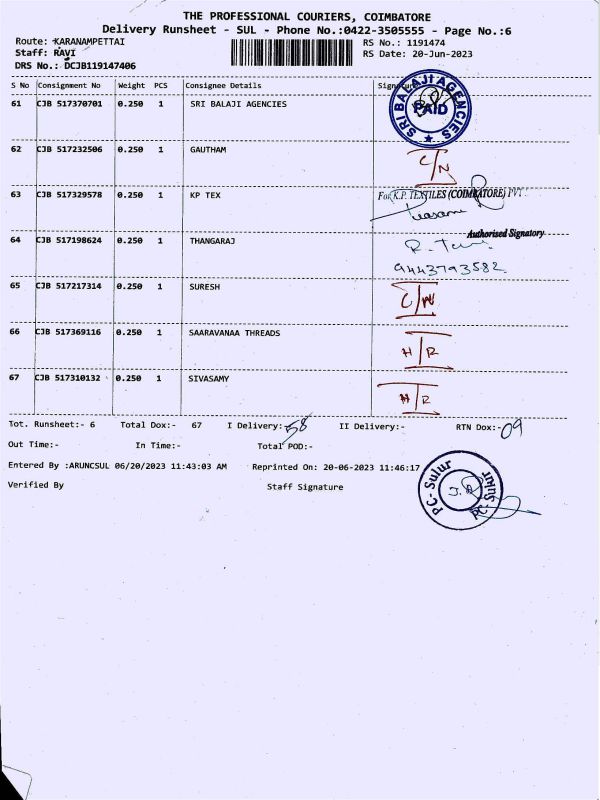 THE PROFESSIONAL COURIERS, COIMBATORE
Delivery Runsheet - SUL - Phone No.:0422-3505555 - Page No.:6
Route: KARANAMPETTAI
RS No.: 1191474
Staff: RAVI
RS Date: 20-Jun-2023
DRS No.: DCJB119147406
S No Consignment No Weight PCS Consignee Details Signature
61 CJB 517370701 0.250 1 SRI BALAJI AGENCIES
SRI BALAJI AGENCIES
PAID
62 CJB 517232506 0.250 1 GAUTHAM
C/N
63 CJB 517329578 0.250 1 KP TEX
For K.P. TEXTILES (COIMBATORE) PVT
Authorised Signatory
64 CJB 517198624 0.250 1 THANGARAJ
9443793582
65 CJB 517217314 0.250 1 SURESH
C/N
66 CJB 517369116 0.250 1 SAARAVANAA THREADS
H/R
67 CJB 517310132 0.250 1 SIVASAMY
H/R
Tot. Runsheet:- 6 Total Dox:- 67 I Delivery:- 58 II Delivery:- RTN Dox:- 09
Out Time:- In Time:- Total POD:-
Entered By :ARUNCSUL 06/20/2023 11:43:03 AM Reprinted On: 20-06-2023 11:46:17
Verified By Staff Signature
PC- Sulur
PC- Sulur